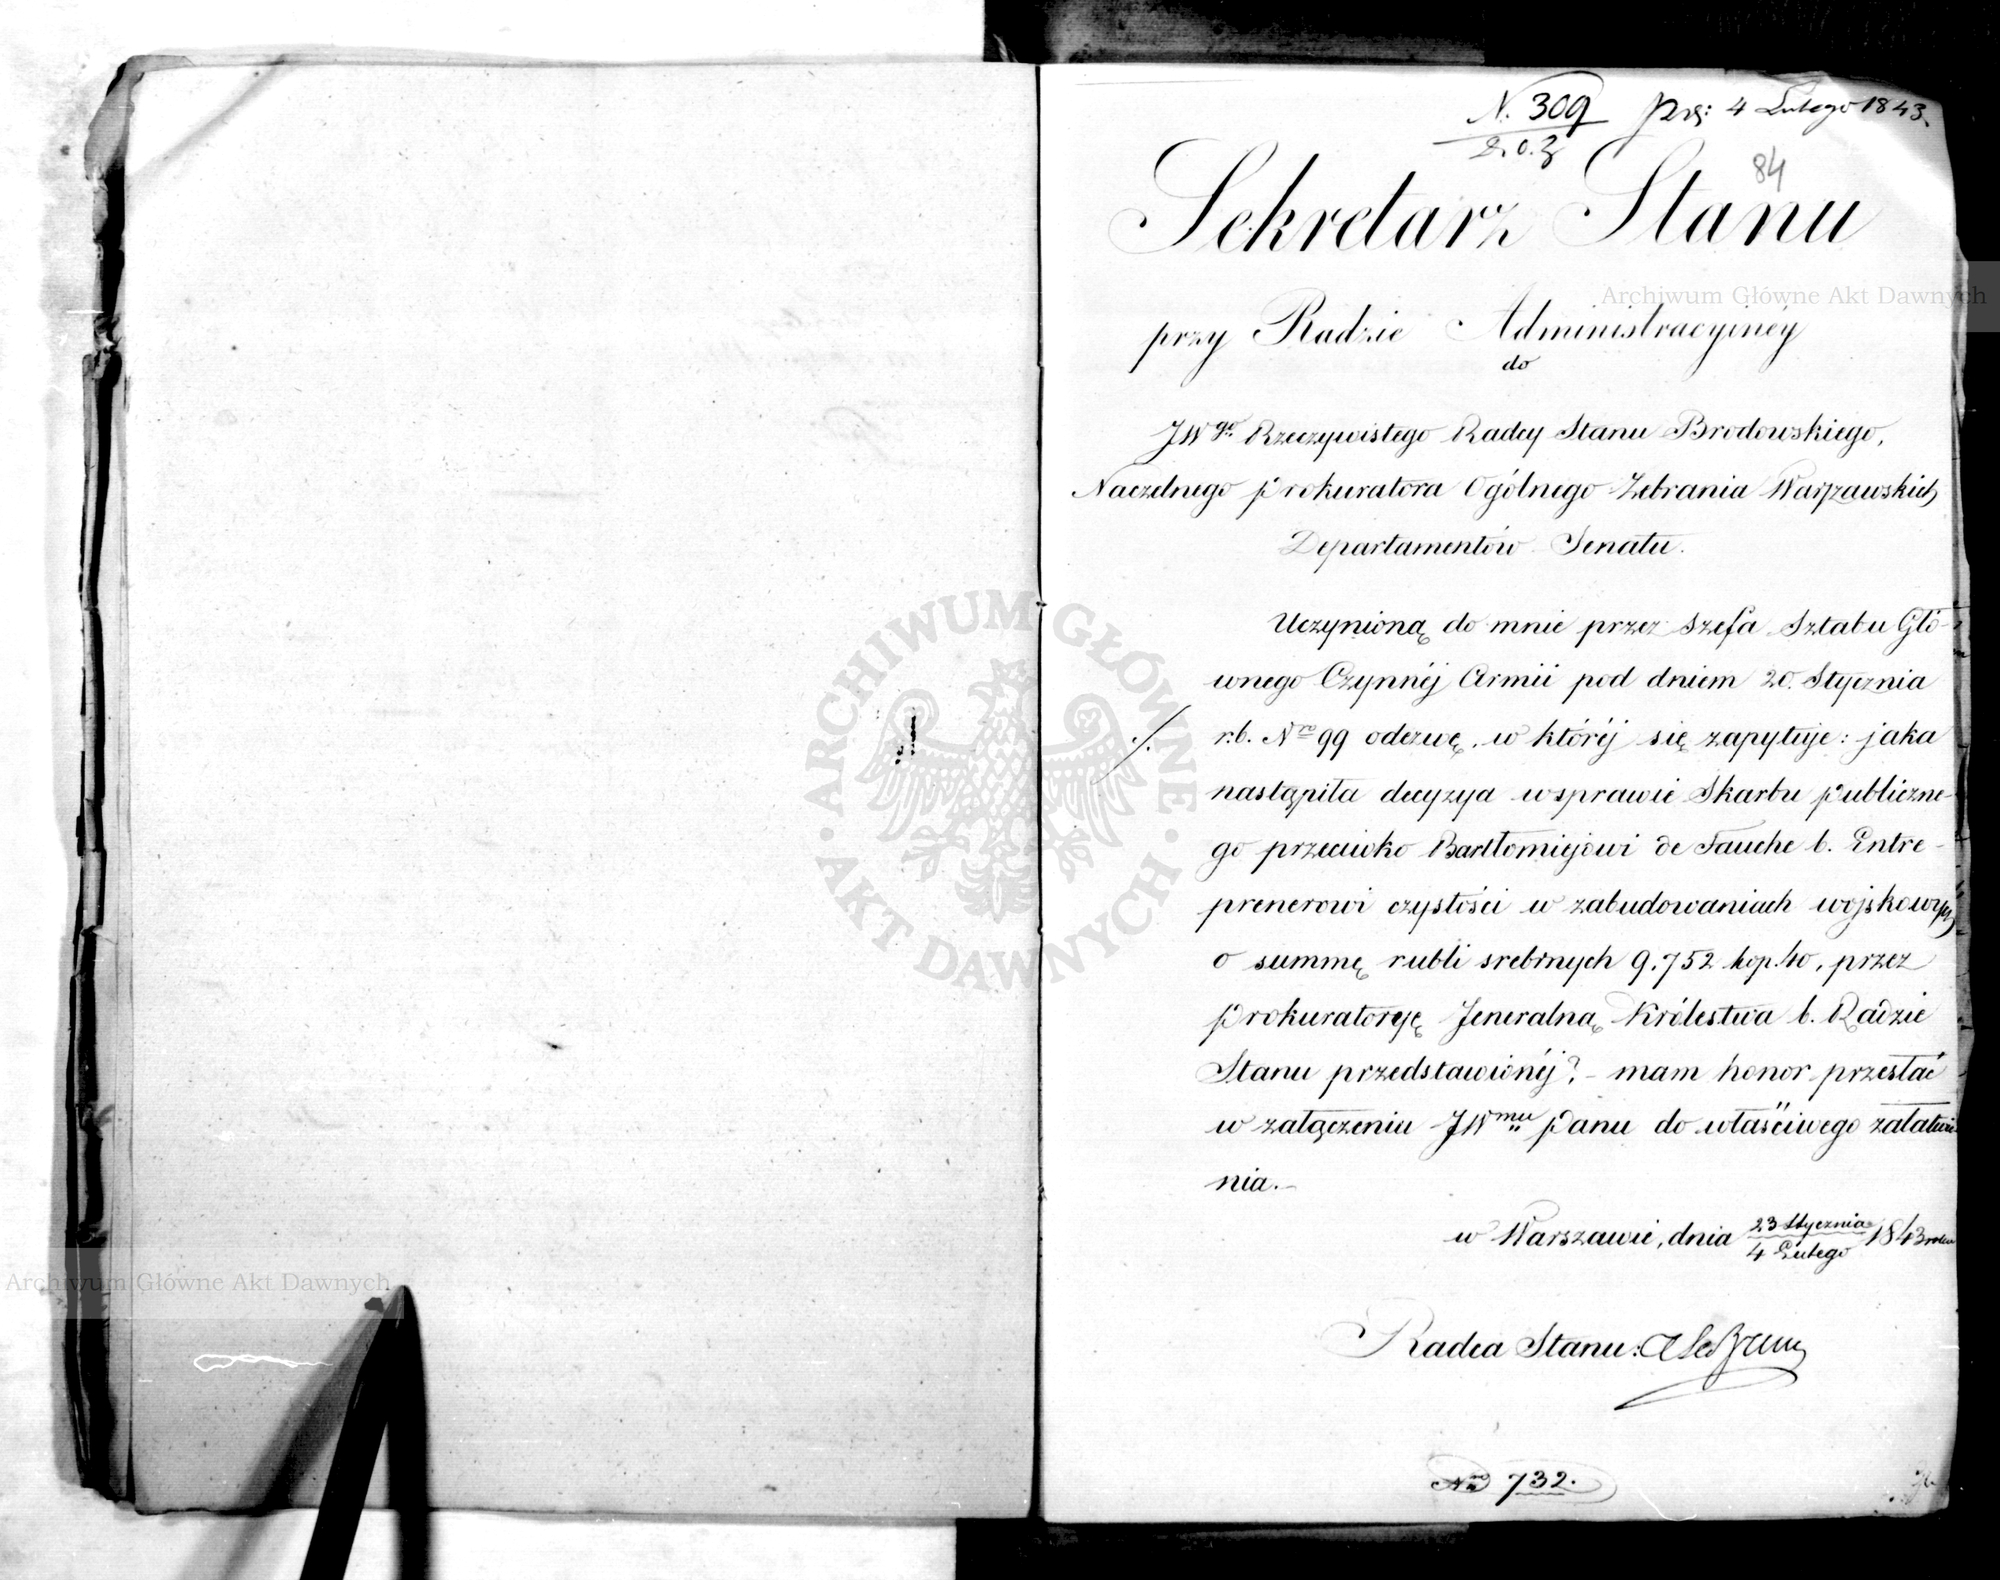 N. 309 Prz: 4 Lutego 1843.
O. Z
84
Sekretarz Stanu
przy Radzie Administracyinéy
do
JWgo Rzeczywistego Radcy Stanu Brodowskiego,
Naczelnego Prokuratora Ogólnego Zebrania Warszawskich
Departamentów Senatu.
Uczynioną do mnie przez Szefa Sztabu Głó-
wnego Czynnéj Armii pod dniem 20. Stycznia
r.b. Nro 99 odezwę, w któréj się zapytuje: jaka
nastąpiła decyzya w sprawie Skarbu publiczne-
go przeciwko Bartłomiejowi de Fauche b. Entre-
prenerowi czystości w zabudowaniach wojskowych
o summę rubli srebrnych 9,752 kop. 40, przez
Prokuratoryę Jeneralną Królestwa b. Radzie
Stanu przedstawionéj? - mam honor przesłać
w załączeniu JWmu Panu do właściwego załatwie-
nia.-
w Warszawie, dnia 23 Stycznia / 4 Lutego 1843 roku
Radca Stanu: A LeBrun
Nro 732.
ARCHIWUM GŁÓWNE AKT DAWNYCH
Archiwum Główne Akt Dawnych
Archiwum Główne Akt Dawnych